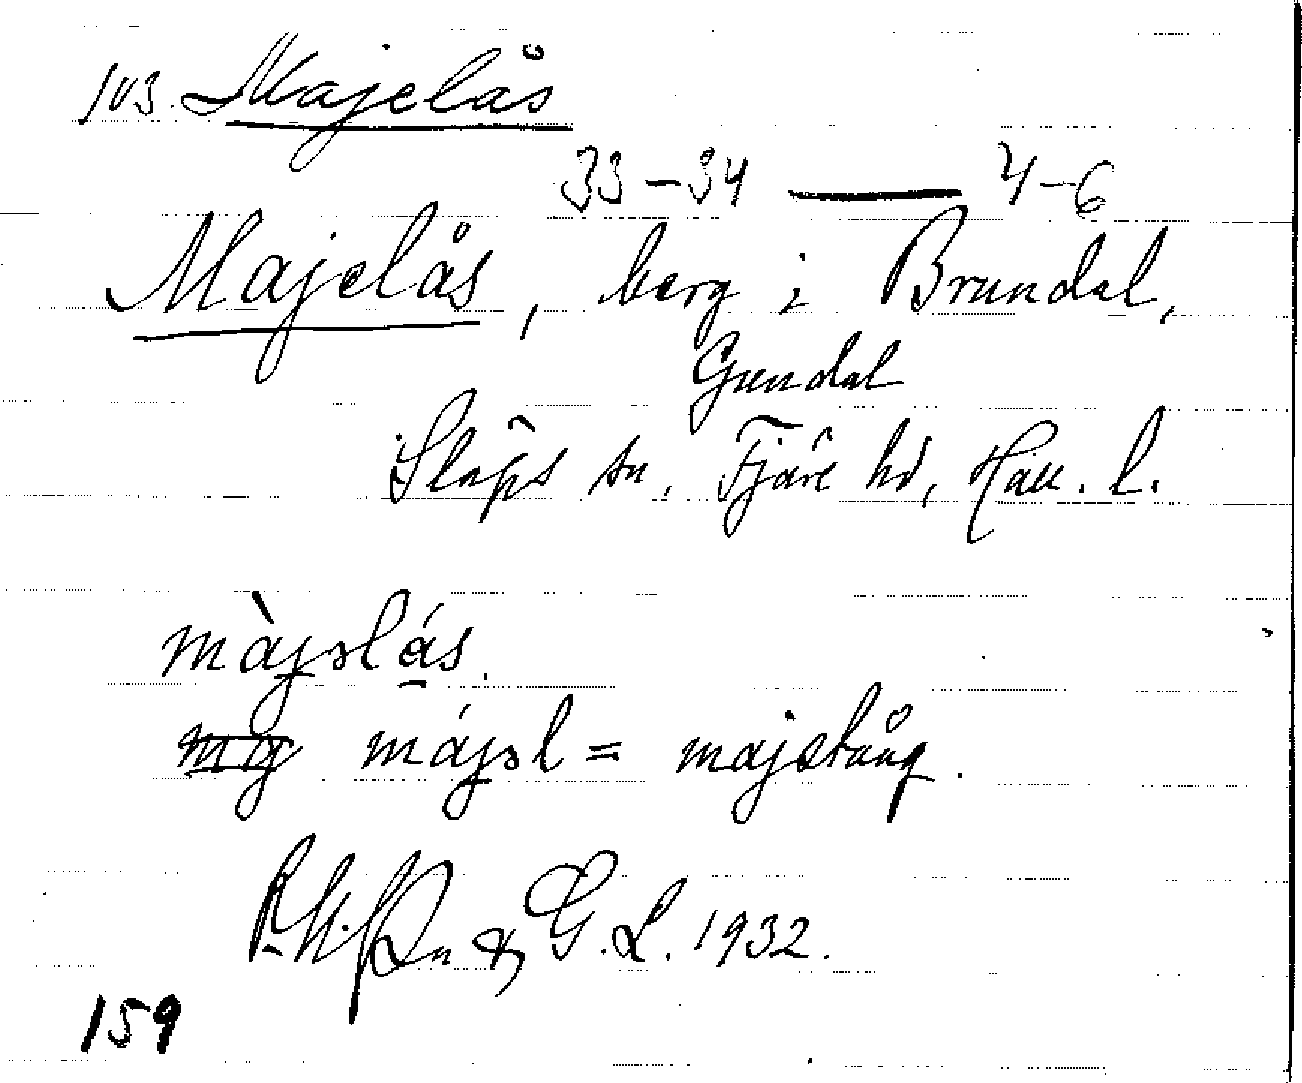 103. Majelås
33-34 — 4-6
Majelås, berg i Brundal,
Gundal
Släps sn, Fjäre hd, Hall. l.
màjəlǻs.
májəl = majstång.
& G. L. 1932.
159